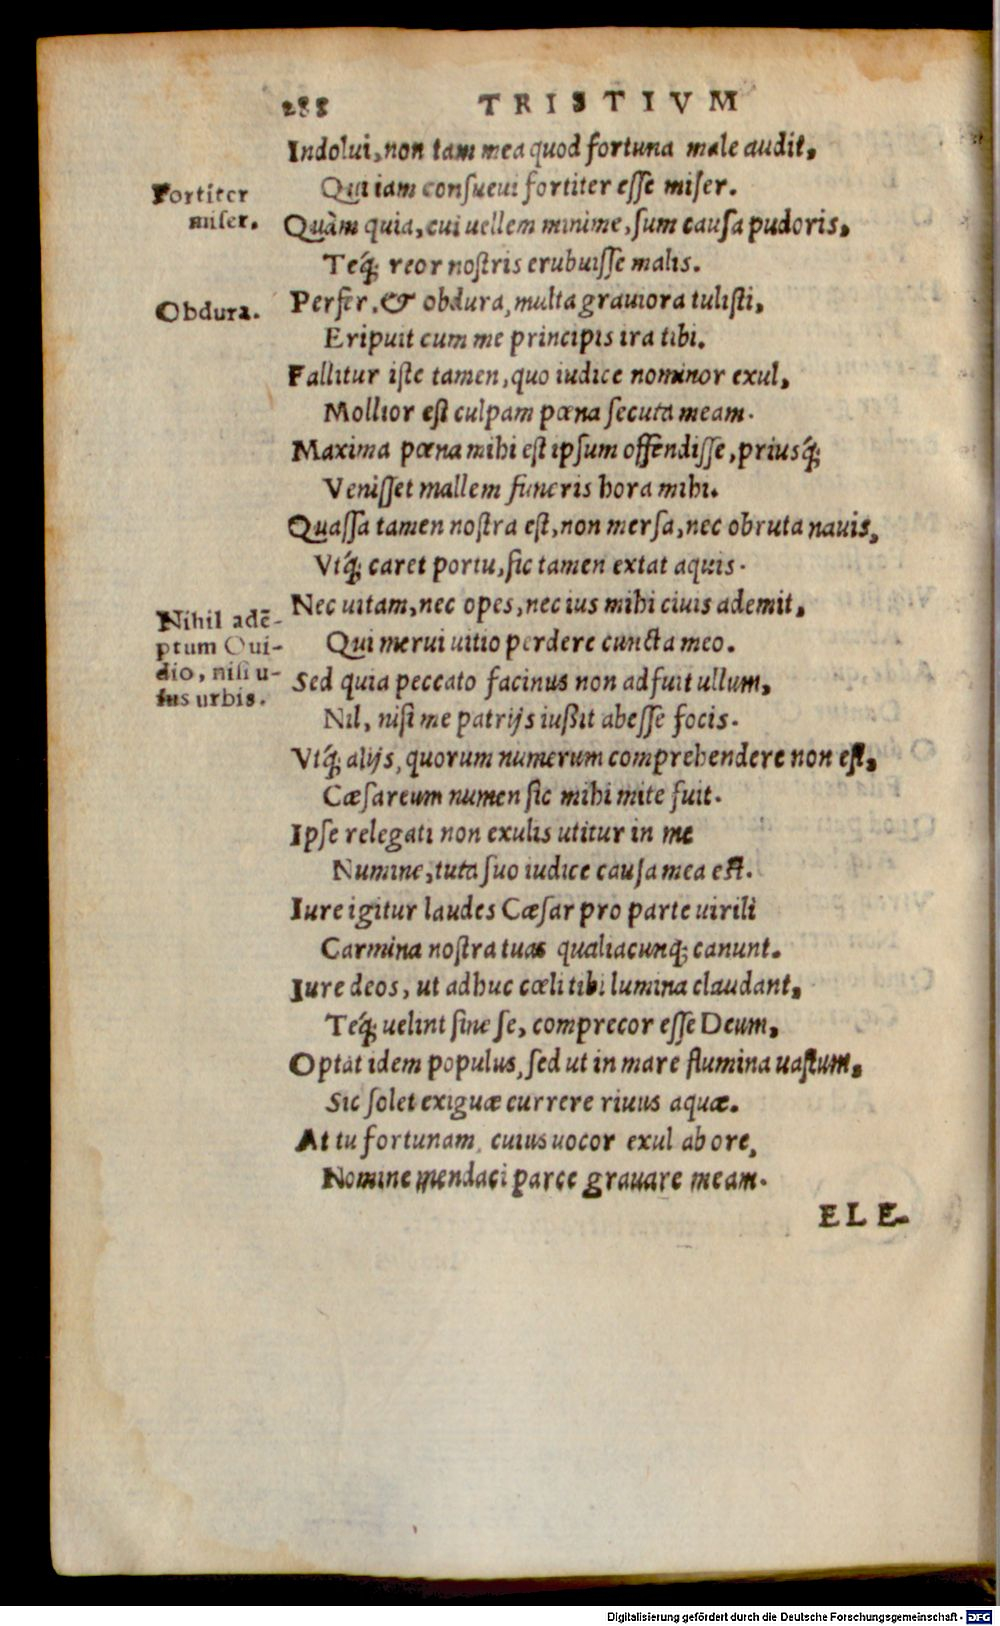 288 TRISTIVM
Indolui, non tam mea quod fortuna male audit,
Qui iam consueui fortiter esse miser.
Fortiter
miser.
Quàm quia, cui uellem minime, sum causa pudoris,
Teq́; reor nostris erubuisse malis.
Perfer, & obdura, multa grauiora tulisti,
Obdura.
Eripuit cum me principis ira tibi.
Fallitur iste tamen, quo iudice nominor exul,
Mollior est culpam pœna secuta meam.
Maxima pœna mihi est ipsum offendisse, priusq́;
Venisset mallem funeris hora mihi.
Quassa tamen nostra est, non mersa, nec obruta nauis,
Vtq́; caret portu, sic tamen extat aquis.
Nec uitam, nec opes, nec ius mihi ciuis ademit,
Nihil adē-
ptum Oui-
dio, nisi u-
sus urbis.
Qui merui uitio perdere cuncta meo.
Sed quia peccato facinus non adfuit ullum,
Nil, nisi me patrijs iußit abesse focis.
Vtq́; alijs, quorum numerum comprehendere non est,
Cæsareum numen sic mihi mite fuit.
Ipse relegati non exulis utitur in me
Numine, tuta suo iudice causa mea est.
Iure igitur laudes Cæsar pro parte uirili
Carmina nostra tuas qualiacunq; canunt.
Iure deos, ut adhuc cœli tibi lumina claudant,
Teq́; uelint sine se, comprecor esse Deum,
Optat idem populus, sed ut in mare flumina uastum,
Sic solet exiguæ currere riuus aquæ.
At tu fortunam, cuius uocor exul ab ore,
Nomine mendaci parce grauare meam.
ELE-
Digitalisierung gefördert durch die Deutsche Forschungsgemeinschaft - DFG